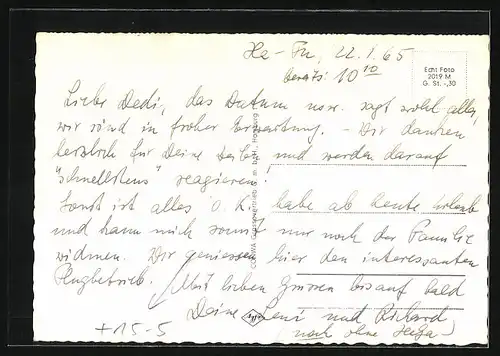 Ha-Fu, 22.1.65
bereits 10 10
Echt Foto
2019 M
G. St. -,30
Liebe Dedi, das Datum usw. sagt wohl alles,
wir sind in froher Erwartung. - Wir danken
herzlich für Deine und werden darauf
"schnellstens" reagieren!
Sonst ist alles o. k. habe ab heute Urlaub
und kann mich somit nur noch der Familie
widmen. Wir geniessen hier den interessanten
Flugbetrieb. Mit lieben Grüssen bis auf bald
Deine Leni und Richard
(noch ohne )
+15-5
m. b. H., Hamburg
Agfa